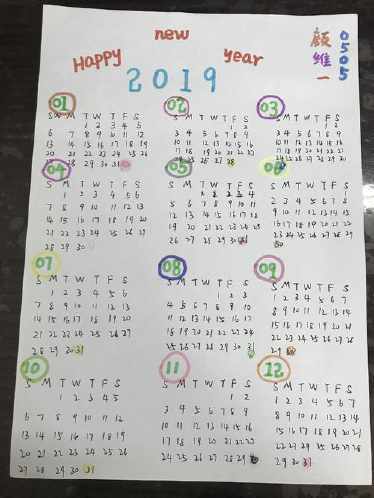 new
Happy year
2019
顾维一
0505
01
S M T W T F S
1 2 3 4 5
6 7 8 9 10 11 12
13 14 15 16 17 18 19
20 21 22 23 24 25 26
28 29 30 31
02
S M T W T F S
1 2
3 4 5 6 7 8 9
10 11 12 13 14 15 16
17 18 19 20 21 22 23
24 25 26 27 28
03
S M T W T F S
1 2
3 4 5 6 7 8 9
10 11 12 13 14 15 16
17 18 19 20 21 22 23
24 25 26 27 28 29 30
04
S M T W T F S
1 2 3 4 5 6
7 8 9 10 11 12 13
14 15 16 17 18 19 20
21 22 23 24 25 26 27
28 29 30
05
S M T W T F S
1 2 3 4
5 6 7 8 9 10 11
12 13 14 15 16 17 18
19 20 21 22 23 24 25
26 27 28 29 30 31
06
S M T W T F S
2 3 4 5 6 7 8
9 10 11 12 13 14 15
16 17 18 19 20 21 22
23 24 25 26 27 28 29
30
07
S M T W T F S
1 2 3 4 5 6
7 8 9 10 11 12 13
14 15 16 17 18 19 20
21 22 23 24 25 26 27
28 29 30 31
08
S M T W T F S
1 2 3
4 5 6 7 8 9 10
11 12 13 14 15 16 17
18 19 20 21 22 23 24
25 26 27 28 29 30 31
09
S M T W T F S
1 2 3 4 5 6 7
8 9 10 11 12 13 14
15 16 17 18 19 20 21
22 23 24 25 26 27 28
29 30
10
S M T W T F S
1 2 3 4 5
6 7 8 9 10 11 12
13 14 15 16 17 18 19
20 21 22 23 24 25 26
27 28 29 30 31
11
S M T W T F S
1 2
3 4 5 6 7 8 9
10 11 12 13 14 15 16
17 18 19 20 21 22 23
24 25 26 27 28 29 30
12
S M T W T F S
1 2 3 4 5 6 7
8 9 10 11 12 13 14
15 16 17 18 19 20 21
22 23 24 25 26 27 28
29 30 31